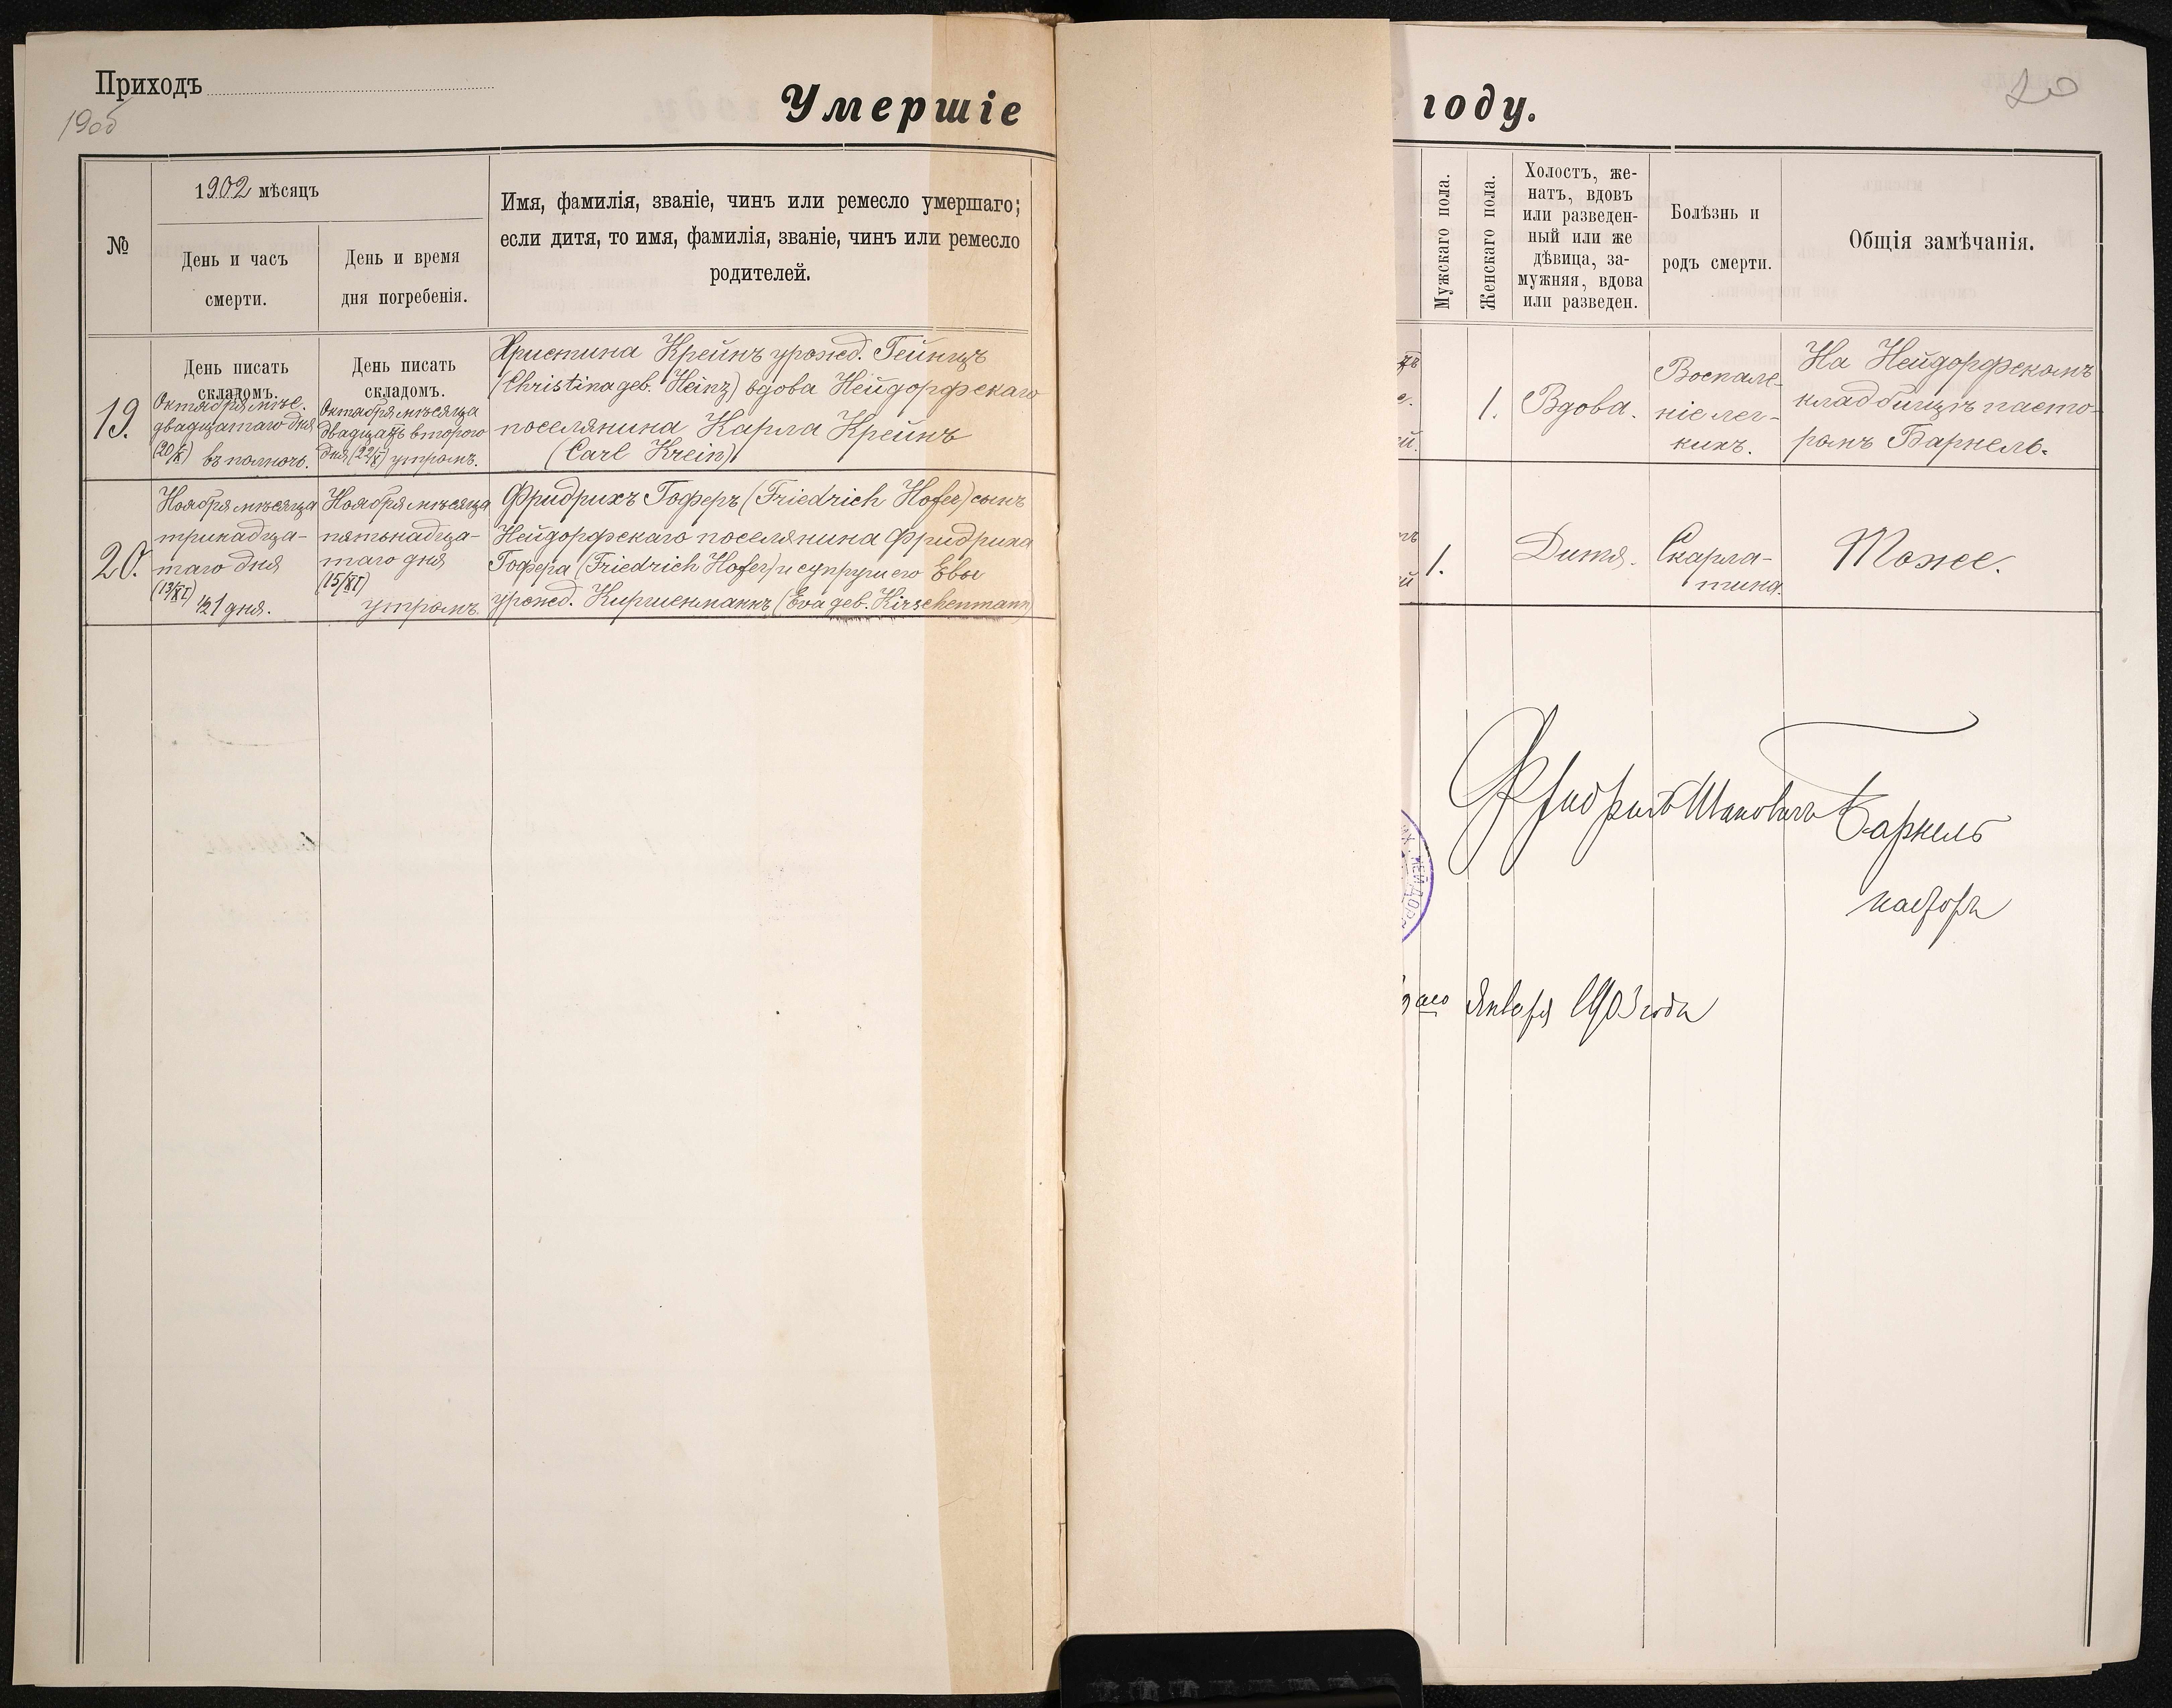 Приходъ
190б
Умершіе
году.
20
№
1902 мѣсяцъ
День и часъ
смерти.
День и время
дня погребенія.
Имя, фамилія, званіе, чинъ или ремесло умершаго;
если дитя, то имя, фамилія, званіе, чинъ или ремесло
родителей.
Мужскаго пола.
Женскаго пола.
Холостъ, же-
натъ, вдовъ
или разведен-
ный или же
дѣвица, за-
мужняя, вдова
или разведен.
Болѣзнь и
родъ смерти.
Общія замѣчанія.
19.
День писать
складомъ.
Октября мѣс.
двадцатаго дня
(20/X) въ полночь.
День писать
складомъ.
Октября мѣсяца
двадцать второго
дня (22/X) утромъ.
Христина Крейнъ урожд. Гейнцъ
(Christina geb. Heinz) вдова Нейдорфскаго
поселянина Карла Крейнъ
(Carl Krein)
1.
Вдова.
Воспале-
ніе лег-
кихъ.
На Нейдорфскомъ
кладбищѣ пасто-
ромъ Барнель.
20.
Ноября мѣсяца
тринадца-
таго дня
(13/XI)
½1 дня.
Ноября мѣсяца
пятьнадца-
таго дня
(15/XI)
утромъ.
Фридрихъ Гоферъ (Friedrich Hofer) сынъ
Нейдорфскаго поселянина Фридриха
Гофера (Friedrich Hofer) и супруги его Евы
урожд. Киршенманнъ (Eva geb. Kirschenmann)
1.
Дитя.
Скарла-
тина.
Тоже.
Фридрихъ Барнель
пасторъ
НЕЙДОР
Января 1903 года